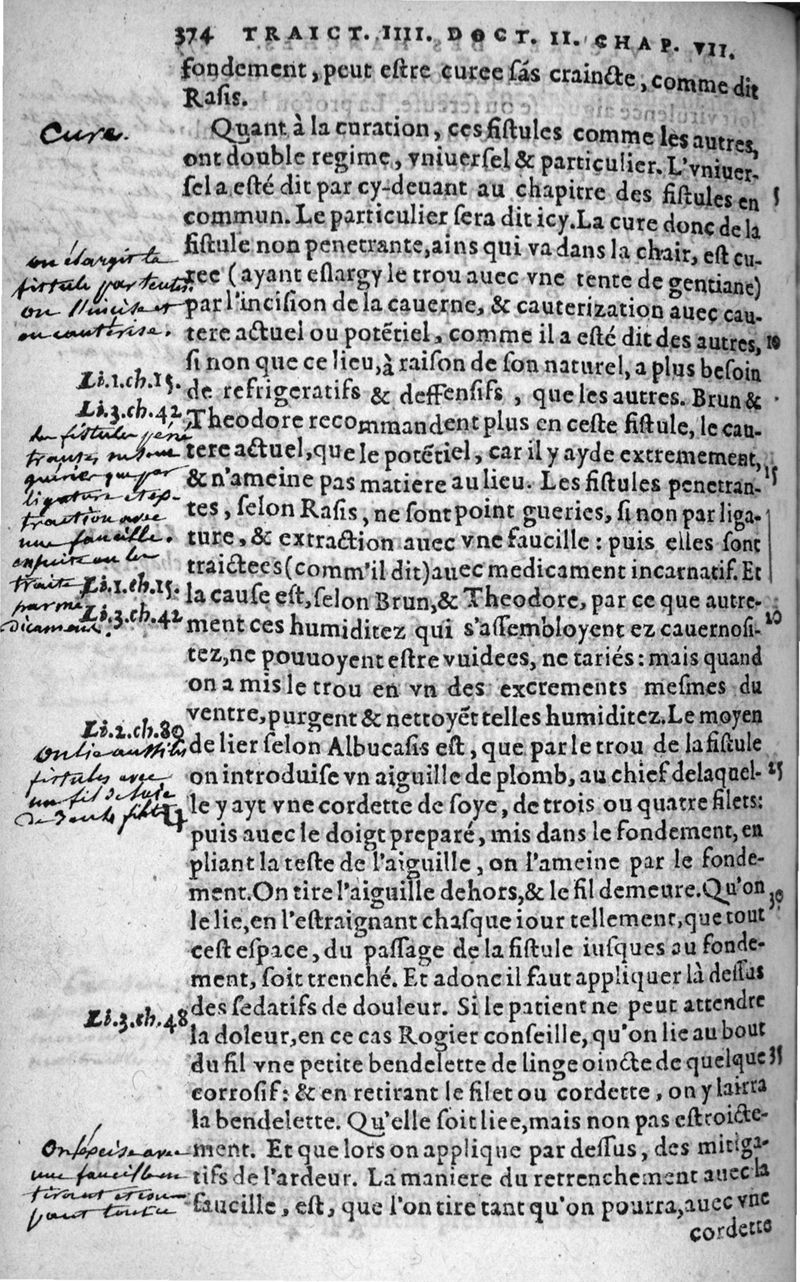 374 TRAICT. IIII. DOCT. II. CHAP. VII.
fondement, peut eſtre curee ſãs craincte, comme dit
Raſis.
Cure.
Quant à la curation, ces fiſtules comme les autres,
ont double regime, vniuerſel & particulier. L'vniuer-
ſel a eſté dit par cy-deuant au chapitre des fiſtules en 5
commun. Le particulier ſera dit icy. La cure donc de la
fiſtule non penetrante, ains qui va dans la chair, eſt cu-
ree (ayant eſlargy le trou auec vne tente de gentiane)
par l'inciſion de la cauerne, & cauterization auec cau-
tere actuel ou potẽtiel, comme il a eſté dit des autres, 10
ſi non que ce lieu, à raiſon de ſon naturel, a plus beſoin
de refrigeratifs & deffenſifs, que les autres. Brun &
Theodore recommandent plus en ceſte fiſtule, le cau-
tere actuel, que le potẽtiel, car il y ayde extremement,
& n'ameine pas matiere au lieu. Les fiſtules penetran- 15
tes, ſelon Raſis, ne ſont point gueries, ſi non par liga-
ture, & extraction auec vne faucille : puis elles ſont
traictees (comm'il dit) auec medicament incarnatif. Et
la cauſe eſt, ſelon Brun, & Theodore, par ce que autre-
ment ces humiditez qui s'aſſembloyent ez cauernoſi- 20
tez, ne pouuoyent eſtre vuidees, ne tariés : mais quand
on a mis le trou en vn des excrements meſmes du
ventre, purgent & nettoyẽt telles humiditez. Le moyen
de lier ſelon Albucaſis eſt, que par le trou de la fiſtule
on introduiſe vn aiguille de plomb, au chief delaquel- 25
le y ayt vne cordette de ſoye, de trois ou quatre filets:
puis auec le doigt preparé, mis dans le fondement, en
pliant la teſte de l'aiguille, on l'ameine par le fonde-
ment. On tire l'aiguille dehors, & le fil demeure. Qu'on 30
le lie, en l'eſtraignant chaſque iour tellement, que tout
ceſt eſpace, du paſſage de la fiſtule iuſques au fonde-
ment, ſoit trenché. Et adonc il faut appliquer là deſſus
des ſedatifs de douleur. Si le patient ne peut attendre
la doleur, en ce cas Rogier conſeille, qu'on lie au bout
du fil vne petite bendelette de linge oincte de quelque 35
corroſif: & en retirant le filet ou cordette, on y lairra
la bendelette. Qu'elle ſoit liee, mais non pas eſtroicte-
ment. Et que lors on applique par deſſus, des mitiga-
tifs de l'ardeur. La maniere du retrenchement auec la
faucille, eſt, que l'on tire tant qu'on pourra, auec vne
cordette
on élargit la
fistule par tentes
ou l'incise et
on cautérise.
Li.1.ch.15.
Li.3.ch.42
guérier que par
ligature et ex-
traction avec
une faucille.
ensuite on les
traite
par mé
dicament.
Li.1.ch.15.
Li.3.ch.42
Li.2.ch.80
On lie aussi les
fistules avec
un fil de soye
Li.3.ch.48
avec
une faucille en
tirant